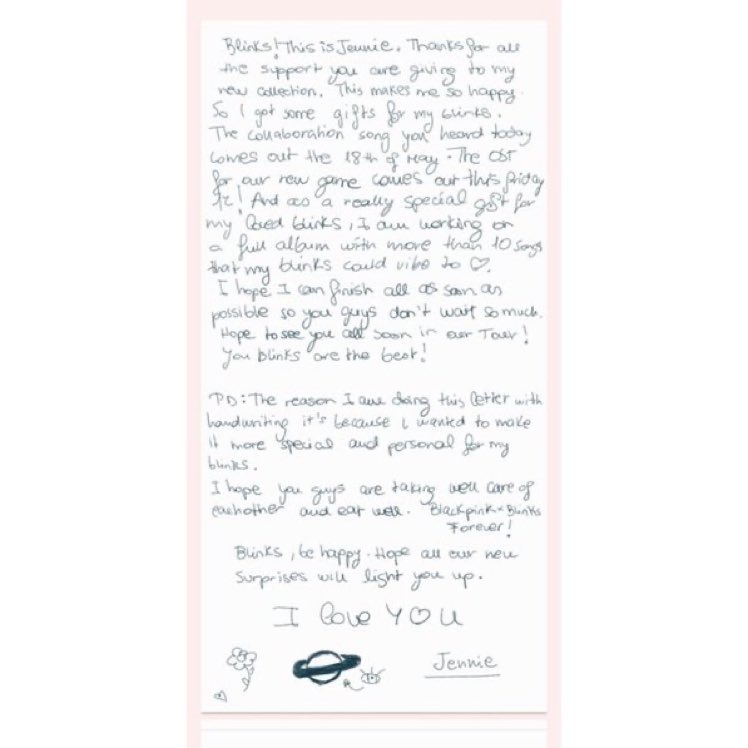 Blinks! This is Jennie. Thanks for all
the support you are giving to my
new collection. This makes me so happy.
So I got some gifts for my blinks.
The collaboration song you heard today
comes out the 18th of May. The OST
for our new game comes out this friday
! And as a really special gift for
my loved blinks, I am working on
a full album with more than 10 songs
that my blinks could vibe to ♡.
I hope I can finish all as soon as
possible so you guys don't wait so much.
Hope to see you all soon in our Tour!
You blinks are the best!
PD: The reason I am doing this letter with
handwriting it's because I wanted to make
it more special and personal for my
blinks.
I hope you guys are taking well care of
eachother and eat well. Blackpink x Blinks
Forever!
Blinks, be happy. Hope all our new
surprises will light you up.
I love YOU
Jennie